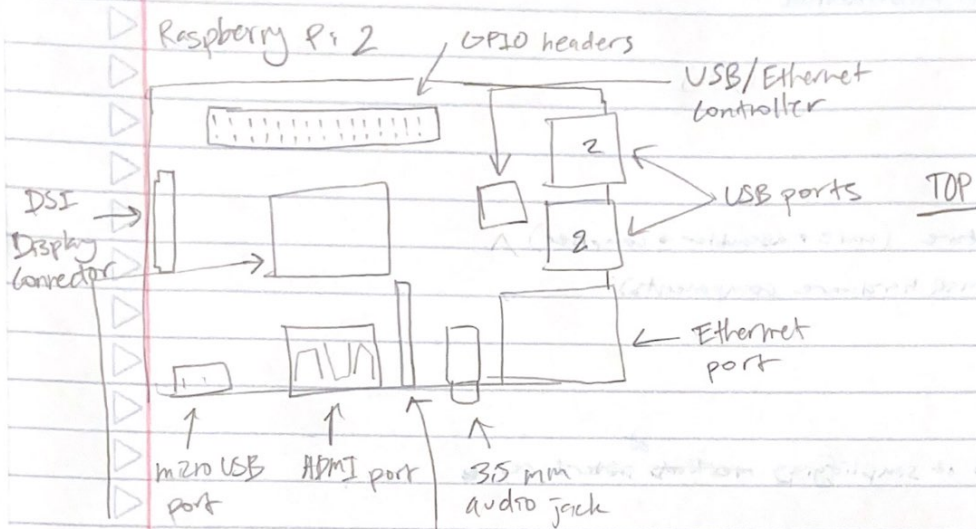 Raspberry Pi 2
GPIO headers
USB/Ethernet
controller
2
USB ports
TOP
DSI
Display
Connector
2
Ethernet
port
micro USB
port
HDMI port
3.5 mm
audio jack